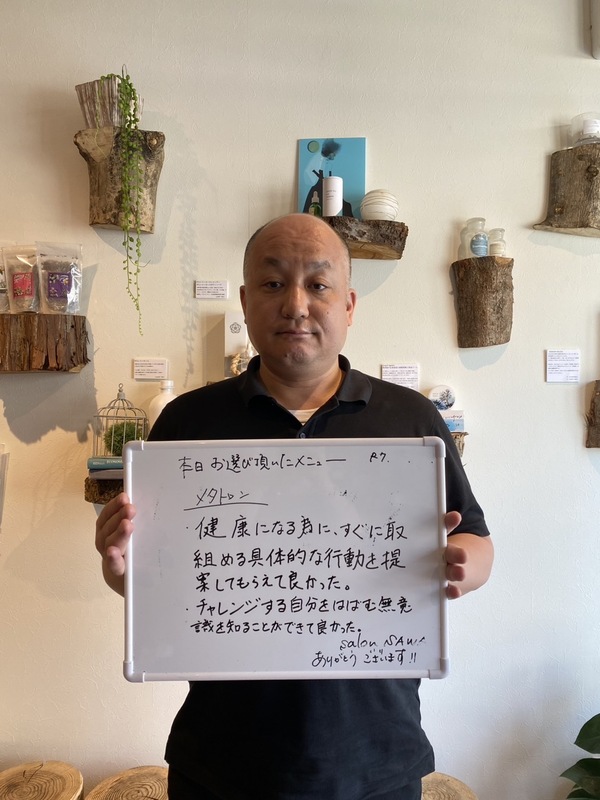 本日 お選び頂いたメニュー R7.
メタトロン
・健康になる為に、すぐに取
組める具体的な行動を提
案してもらえて良かった。
・チャレンジする自分をはばむ無意
識を知ることができて良かった。
Salon SAWA
ありがとうございます!!